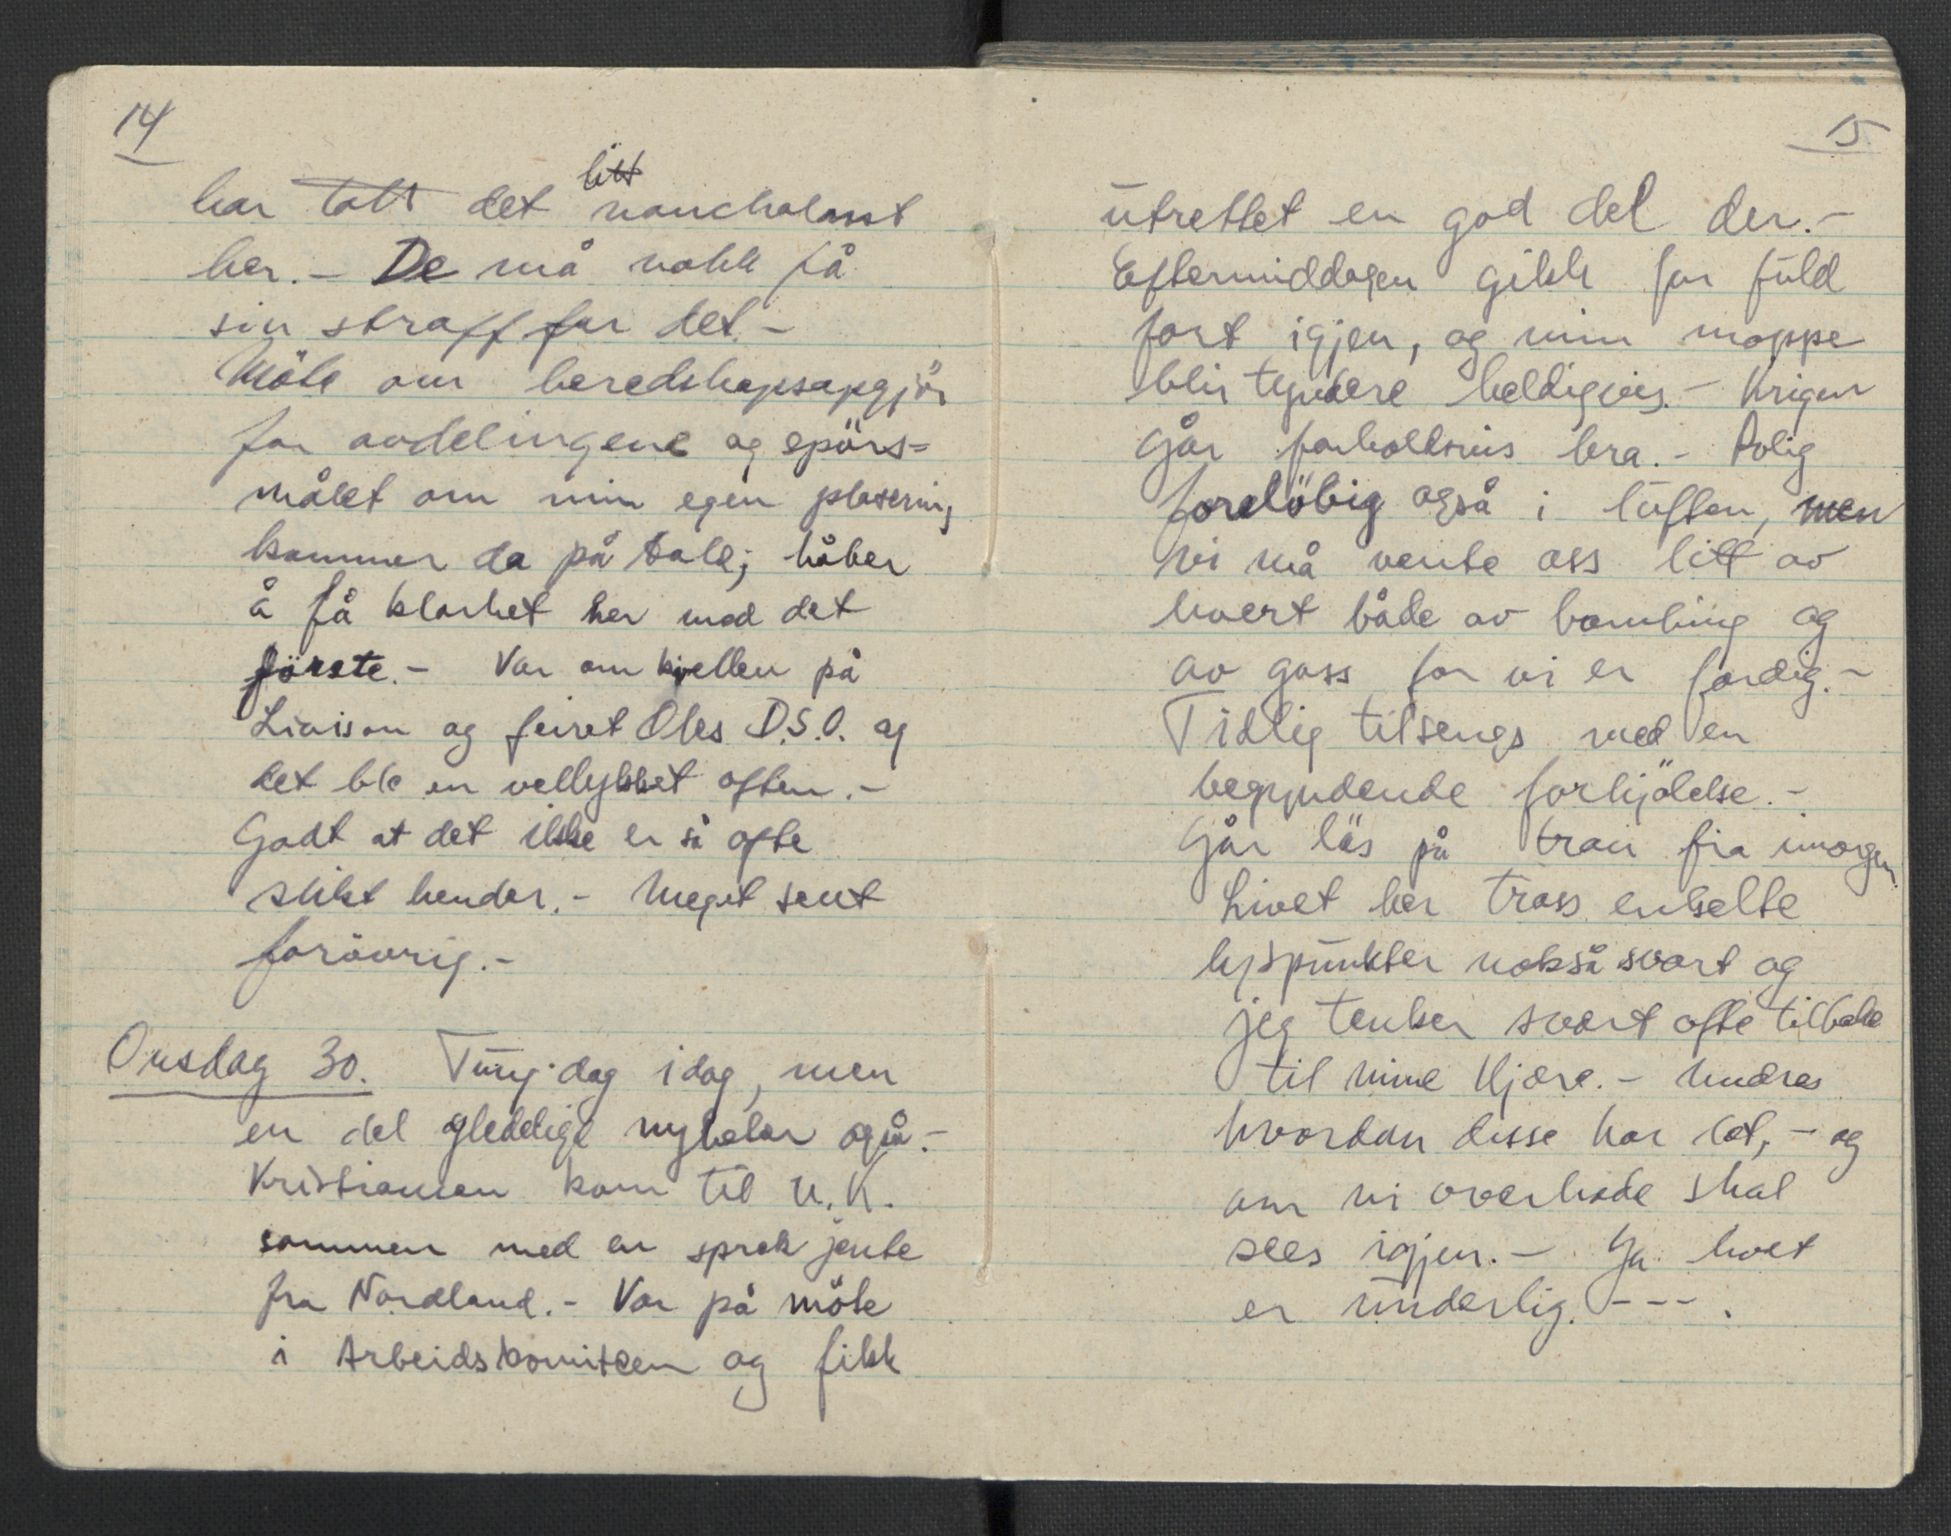 14
har tatt det litt nonchalant
her. - De må nokk få
sin straff for det. -
Möte om beredskapsopgjör
for avdelingene og spörs=
målet om min egen plasering
kommer da på tale; håber
å få klarhet her med det
förste. - Var om kvellen på
Liaison og feiret Oles D.S.O. og
det ble en vellykket aften. -
Godt at det ikke er så ofte
slikt hender. - Meget sent
forövrig. -
Onsdag 30. Tung dag idag, men
en del gledelige nyheter også. -
Kristiansen kom til U.K.
sammen med en sprek jente
fra Nordland. - Var på möte
i Arbeidskomiteen og fikk
15
utrettet en god del der. -
Eftermiddagen gikk for fuld
fart igjen, og min mappe
blir tyndere heldigvis. - Krigen
går forholdsvis bra. - Rolig
forelöbig også i luften, men
vi må vente oss litt av
hvert både av bombing og
av gass för vi er ferdig. -
Tidlig tilsengs med en
begyndende forkjölelse. -
Går lös på tran fra imorgen.
Livet her tross enkelte
lyspunkter nokså svart og
jeg tenker svært ofte tilbake
til mine kjære. - Undres
hvordan disse har det, - og
om vi overhode skal
sees igjen. - Ja livet
er underlig. - - - .